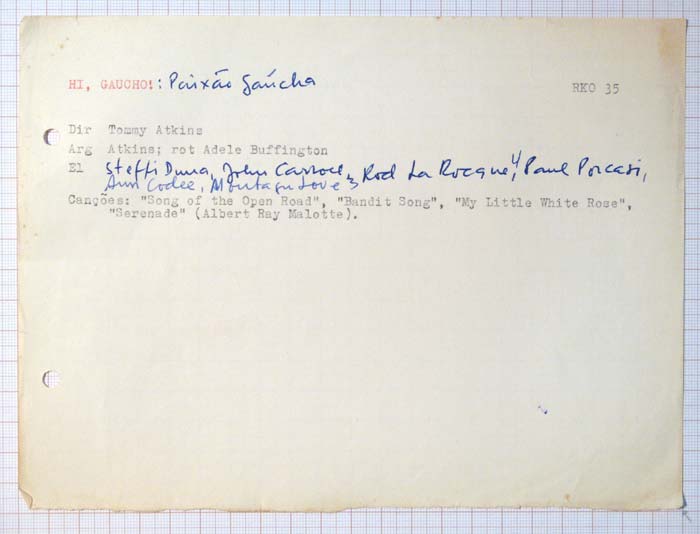 HI, GAUCHO!: Paixão Gaúcha RKO 35
Dir Tommy Atkins
Arg Atkins; rot Adele Buffington
El Steffi Duna, John Carroll, Rod La Rocque, 4 Paul Porcasi,
Ann Codee, Montagu Love 3
Canções: "Song of the Open Road", "Bandit Song", "My Little White Rose",
"Serenade" (Albert Ray Malotte).